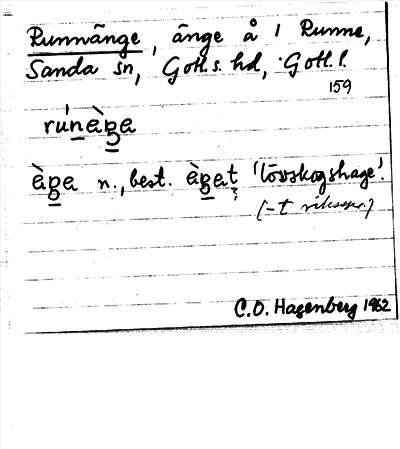 Runnänge, änge å 1 Runne,
Sanda sn, Gotl. s. hd, Gotl. l.
159
rúnèŋe
èŋe n., best. èŋet, 'lövskogshage'.
(-t rikspr.)
C.O. Hagenberg 1962